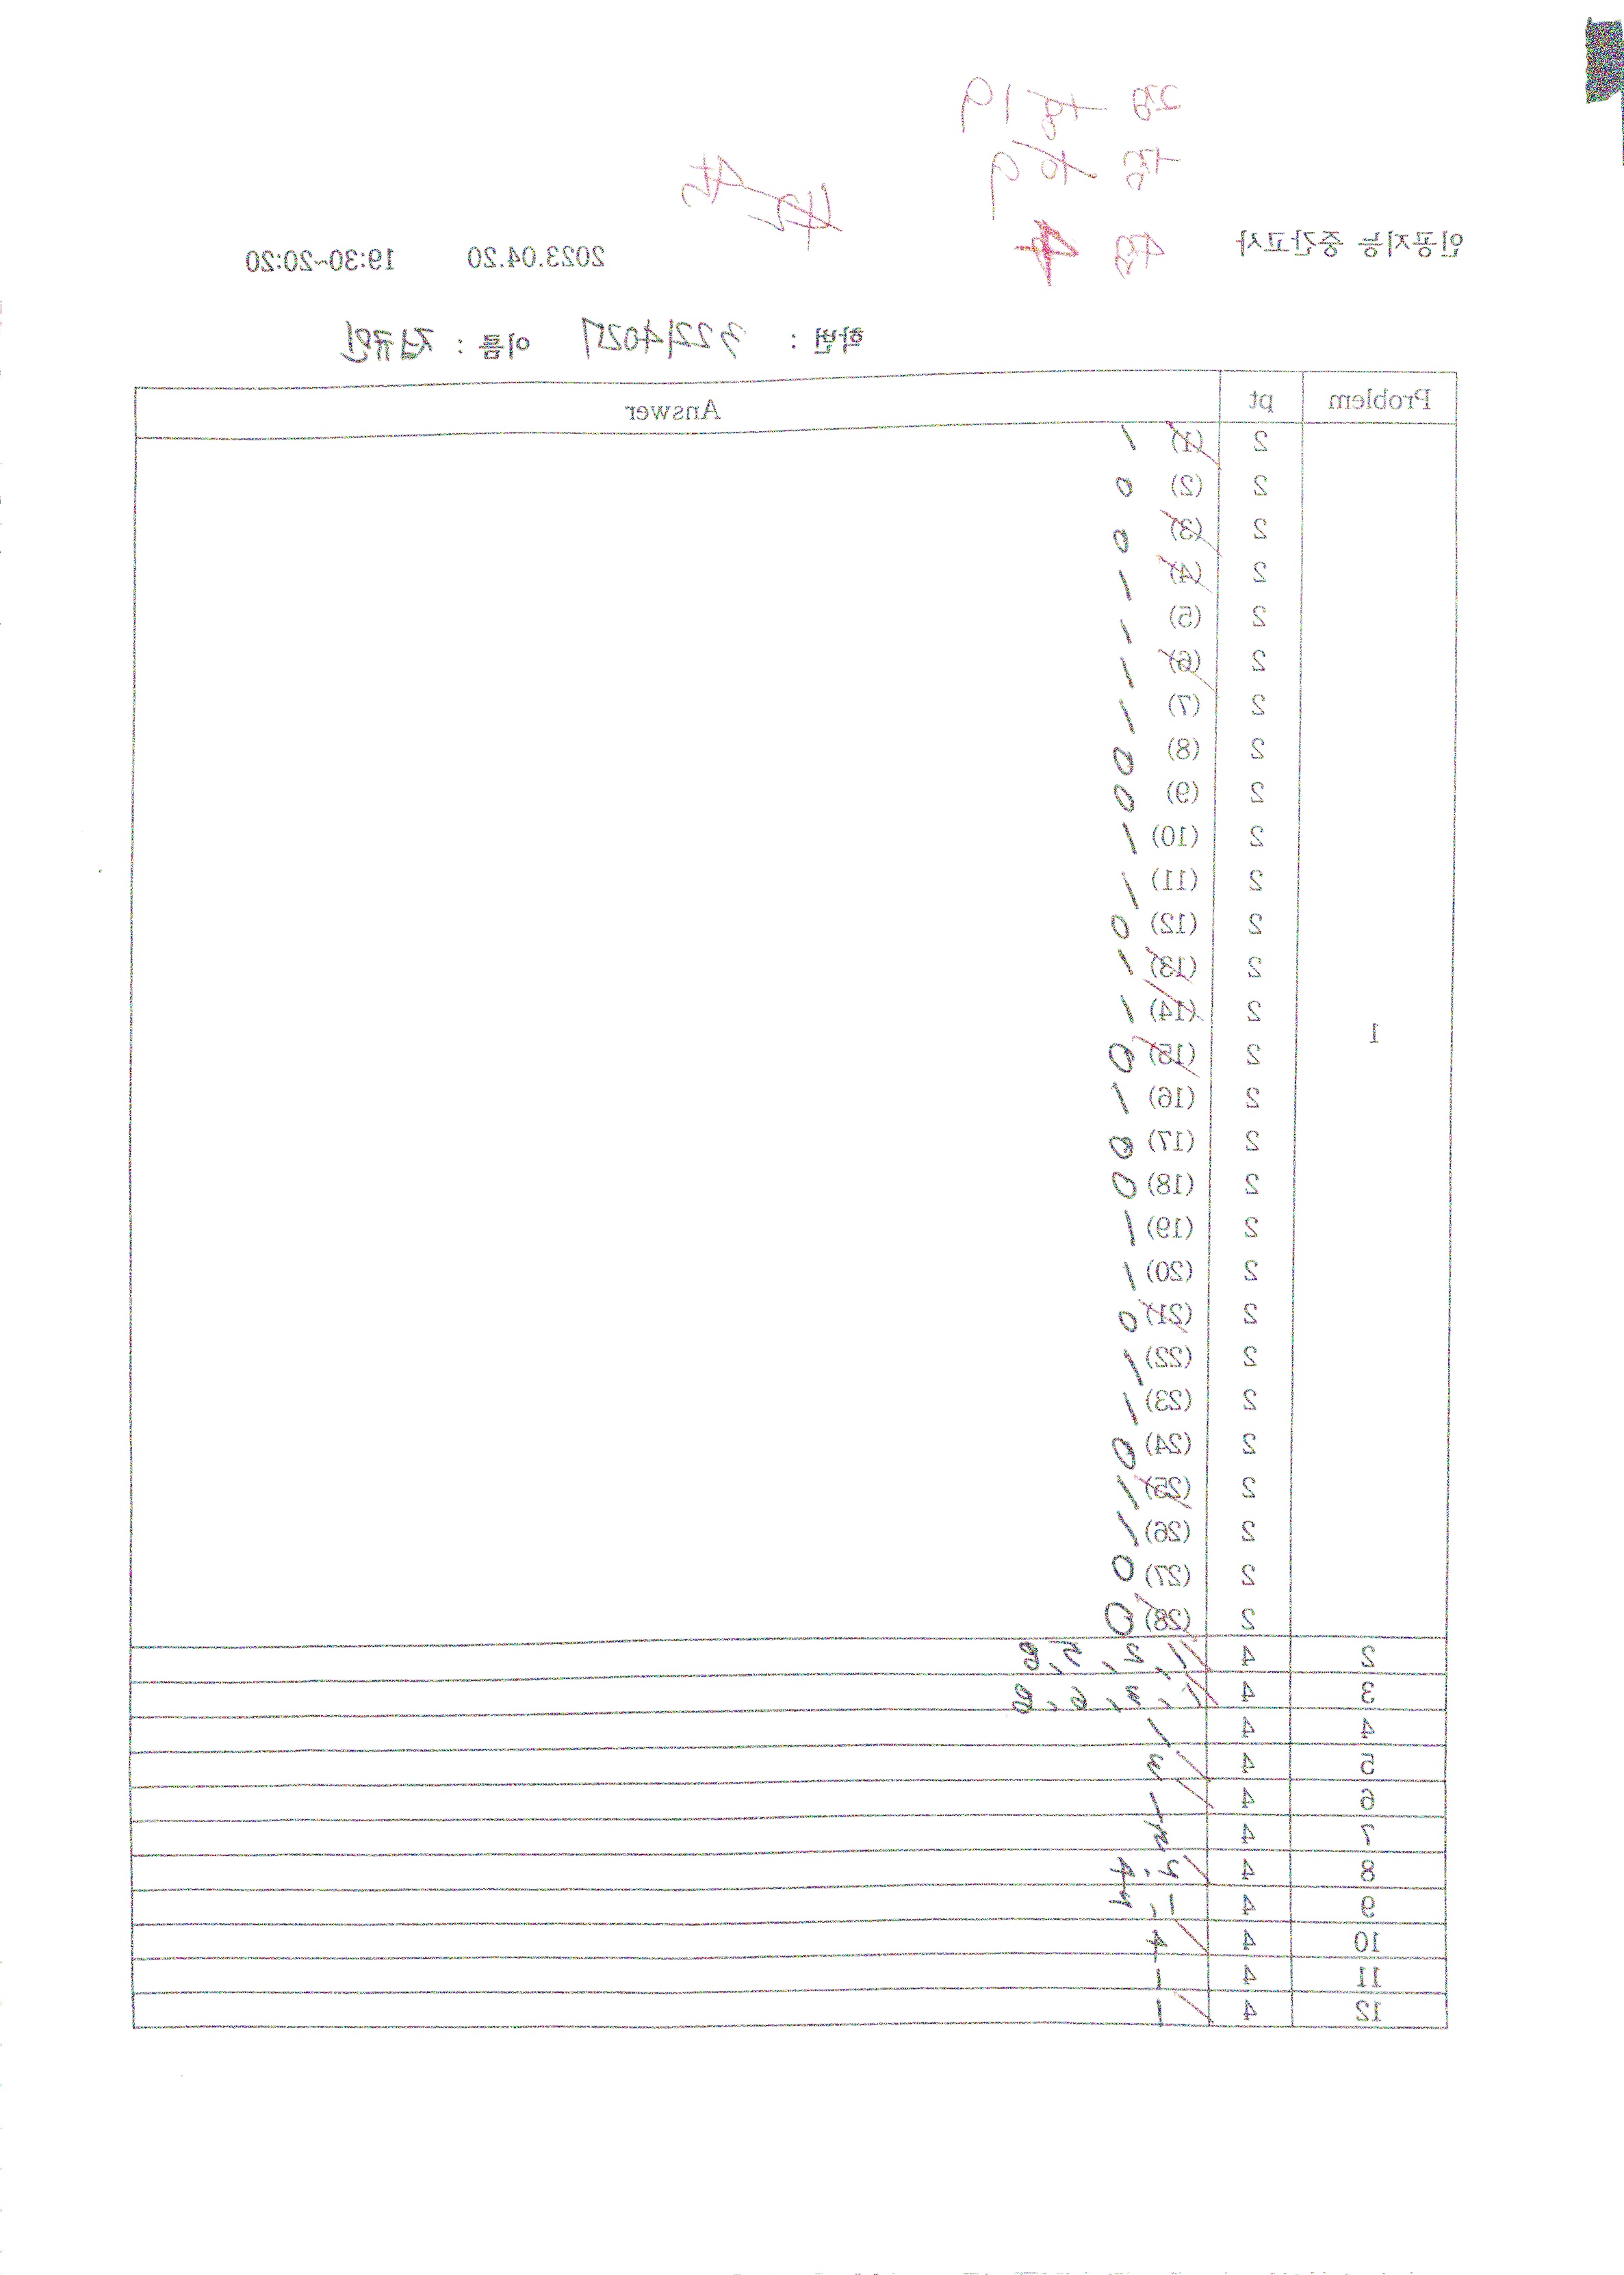 인공지능 중간고사
2023.04.20 19:30~20:20
학번 : 32214027 이름 : 정규민
Problem pt Answer
1
2 (1) 1
2 (2) 0
2 (3) 0
2 (4) 1
2 (5) 1
2 (6) 1
2 (7) 1
2 (8) 0
2 (9) 0
2 (10) 1
2 (11) 1
2 (12) 0
2 (13) 1
2 (14) 1
2 (15) 0
2 (16) 1
2 (17) 0
2 (18) 0
2 (19) 1
2 (20) 1
2 (21) 0
2 (22) 1
2 (23) 1
2 (24) 0
2 (25) 1
2 (26) 1
2 (27) 0
2 (28) 0
2 4 1, 2, 5, 8
3 4 1, 3, 6, 8
4 4 1
5 4 3
6 4 1
7 4
8 4 2, 4
9 4 1, 4
10 4 4
11 4 1
12 4 1